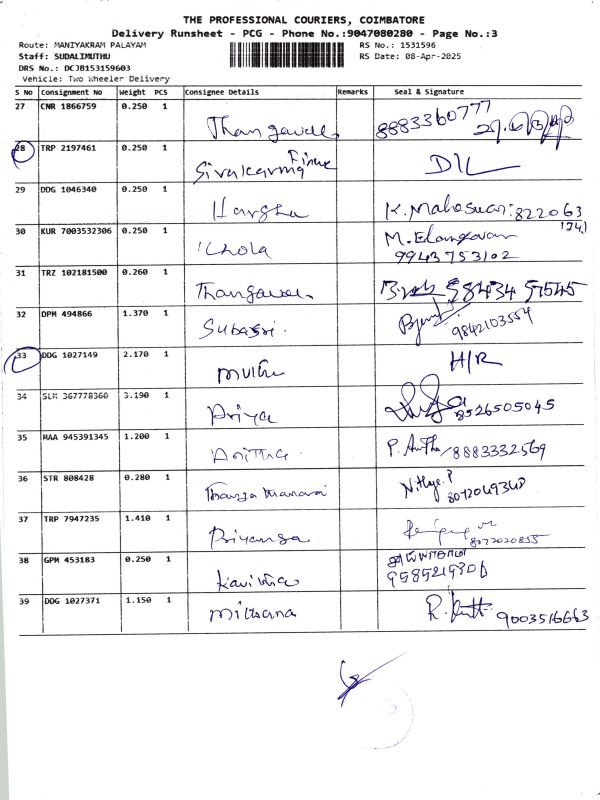 THE PROFESSIONAL COURIERS, COIMBATORE
Delivery Runsheet - PCG - Phone No.:9047080280 - Page No.:3
Route: MANIYAKRAM PALAYAM RS No.: 1531596
Staff: SUDALIMUTHU RS Date: 08-Apr-2025
DRS No.: DCJB153159603
Vehicle: Two Wheeler Delivery
S No Consignment No Weight PCS Consignee Details Remarks Seal & Signature
27 CNR 1866759 0.250 1 Thangavel 8883360777
28 TRP 2197461 0.250 1 Sivakarma Finue D/L
29 DDG 1046340 0.250 1 Harsha K. Mahoswari: 822063
30 KUR 7003532306 0.250 1 Chola M. Elangovan
9943753102
31 TRZ 102181500 0.260 1 Thangavel 98434 51545
32 DPM 494866 1.370 1 Subasri. 9842103554
33 DDG 1027149 2.170 1 muthu H/R
34 SLM 367778360 3.190 1 Priya 8526505045
35 MAA 945391345 1.200 1 Anitha P. Anitha/8883332569
36 STR 808428 0.280 1 Nithya. P
8072049348
37 TRP 7947235 1.410 1 Priyanga 8072020855
38 GPM 453183 0.250 1 Kavitha 9585219306
39 DDG 1027371 1.150 1 Mithana 9003516663